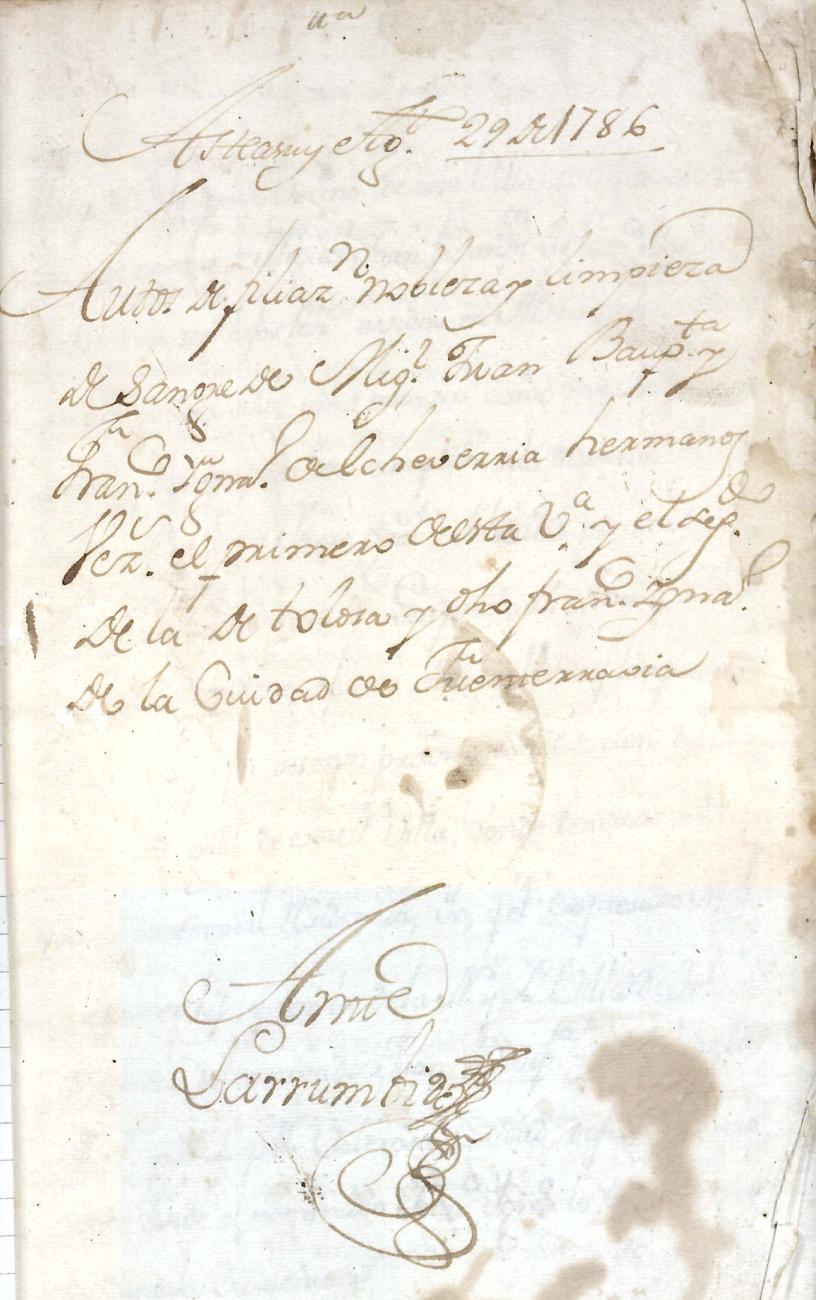 Asteasu y Ag.to 29 de 1786
Autos de filiaz.n nobleza y limpieza
de Sangre de Mig.l Juan Baup.ta y
Fran.co Ygna.o de Echeverria hermanos
Vez.s el primero de esta V.a y el seg.do
de la de tolosa y dho fran.co Ygna.o
de la Ciudad de Fuenterravia
Ante
Larrumbide